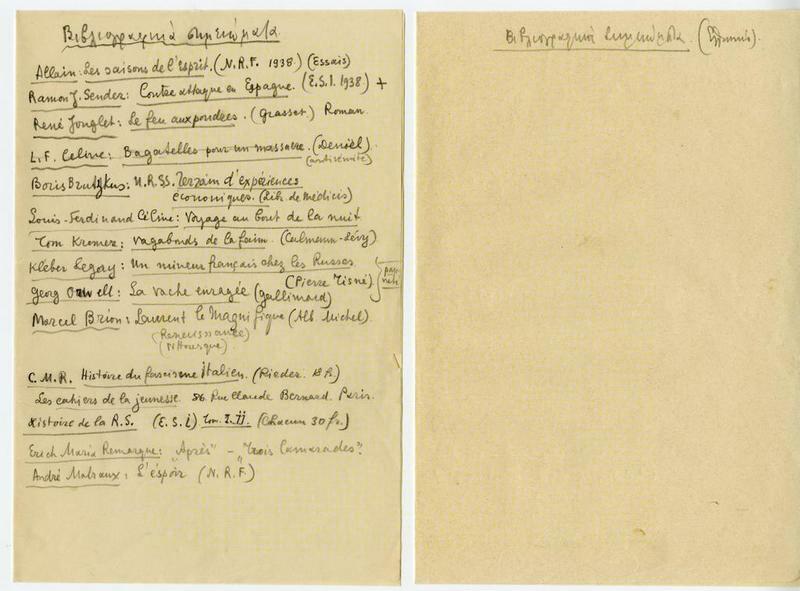 Βιβλιογραφικά σημειώματα.
Allain: Les saisons de l'esprit. (N.R.F. 1938) (Essais)
Ramon J. Sender: Contre attaque en Espagne. (E.S.I. 1938) +
René Jonglet: Le feu aux poudres. (Grasset) Roman.
L.F. Celine: Bagatelles pour un massacre. (Denoël).
(antisémite)
Boris Brutzkus: U.R.SS. Terrain d'expériences
économiques. (Lib. de Médicis)
Louis-Ferdinand Céline: Voyage au bout de la nuit
Tom Kromer: Vagabonds de la faim. (Calmann-Lévy)
Kléber Legay: Un mineur français chez les Russes
(Pierre Tisné)
Georg Orwell: La vache enragée (Gallimard)
Marcel Brion: Laurent le Magnifique (Alb. Michel).
(Renaissance)
(Pittoresque)
C.M.R. Histoire du fascisme Italien. (Rieder. 18 fr.)
Les cahiers de la jeunesse. 56. Rue Claude Bernard. Paris.
Histoire de la R.S. (E.S.i) Tom. I. II. (Chacun 30 fr.)
Erich Maria Remarque: "Après" - "Trois Camarades".
André Malraux: L'éspoir (N.R.F.)
Βιβλιογραφικά Σημειώματα.